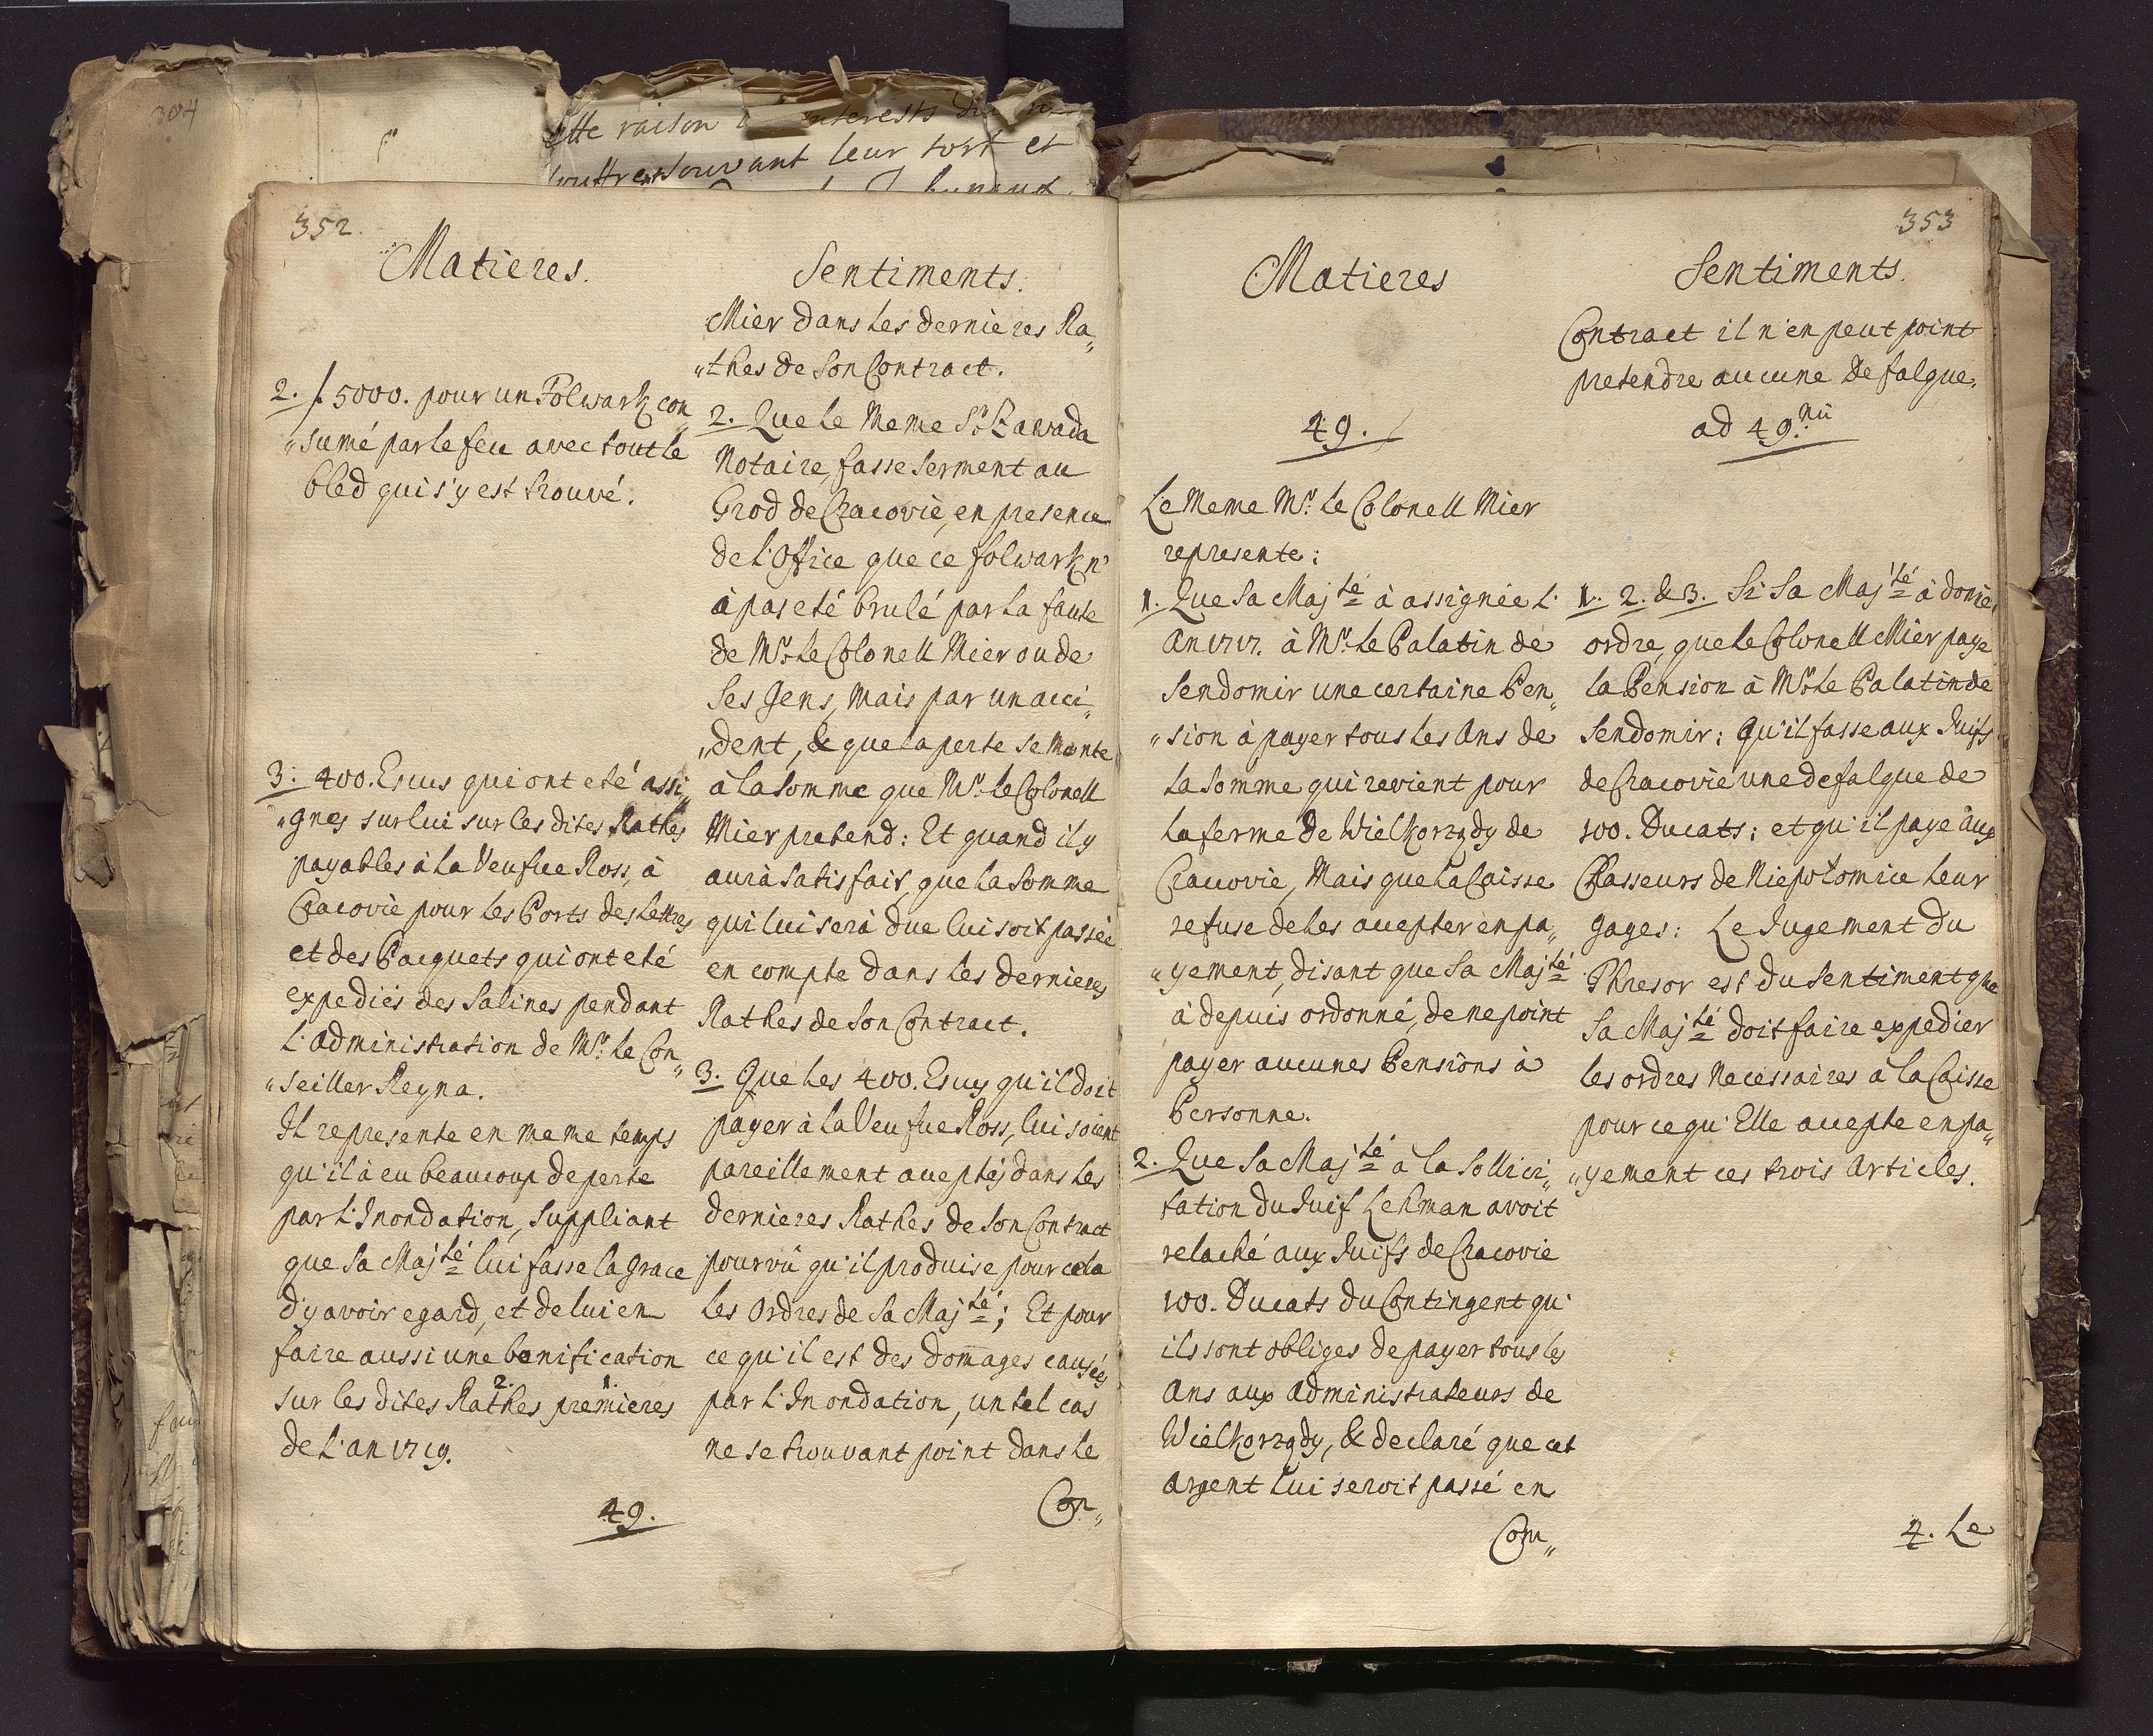 304
ette raison interests du
souffre souvant leur tort et
352.
Matieres.
2. f 5000. pour un Folwark con„
„sumé par le feu avec tout le
bled qui s'y est trouvé.
3. 400. Escus qui ont eté assi„
„gnes sur lui sur les dites Rathes
payables à la Veufue Ross, à
Cracovie pour les Ports des Lettres
et des Pacquets qui ont eté
expediés des Salines pendant
l'administration de Mr. le Con„
„seiller Reyna.
Il represente en meme temps
qu'il à eu beaucoup de perte
par l'Inondation, suppliant
que Sa Majté lui fasse la grace
d'y avoir egard, et de lui en
faire aussi une bonification
sur les dites Rathes 2. premieres 1.
de l'an 1719.
49.
Sentiments.
Mier dans les dernieres Ra„
„thes de Son Contract.
2. Que le meme Sr. Zawada
Notaire, fasse serment au
Grod de Cracovie, en presence
de l'Office que ce folwark n'
à pas eté brulé par la faute
de Mr. le Colonell Mier ou de
ses Gens, mais par un acci„
„dent, & que la perte se monte
à la somme que Mr. le Colonell
Mier pretend: Et quand il y
aurà satisfait, que la somme
qui lui serà due lui soit passée
en compte dans les dernieres
Rathes de son Contract.
3. Que les 400. Escus qu'il doit
payer à la Veufue Ross, lui soient
pareillement aceptés dans les
dernieres Rathes de son Contract
pourvû qu'il produise pour cela
les Ordres de Sa Majté; Et pour
ce qu'il est des domages causés
par l'Inondation, un tel cas
ne se trouvant point dans le
Con„
353
Matieres
49.
Le Meme Mr. le Colonell Mier
represente:
1. Que Sa Majté à assignée l'
An 1717. à Mr. le Palatin de
Sendomir une certaine Pen„
„sion à payer tous les Ans de
la Somme qui revient pour
la ferme de Wielkorządy de
Cracovie, Mais que la Caisse
refuse de les accepter en pa„
„yement, disant que Sa Majté
à depuis ordonné, de ne point
payer aucunes Pensions à
Personne.
2. Que Sa Majté à la Sollici„
tation du Juif Lehman avoit
relaché aux Juifs de Cracovie
100. Ducats du Contingent qu'
ils sont obliges de payer tous les
Ans aux Administrateurs de
Wielkorządy, & declaré que cet
Argent lui seroit passé en
Com„
Sentiments.
Contract il n'en peut point
pretendre aucune Defalque.
ad 49.nū
1. 2. & 3. Si Sa Majté à donné
ordre, que le Colonell Mier paye
la Pension à Mr. le Palatin de
Sendomir: Qu'il fasse aux Juifs
de Cracovie une defalque de
100. Ducats; et qu'il paye aux
Chasseurs de Niepołomice leur
gages: Le Jugement du
Thresor est du sentiment que
Sa Majté doit faire expedier
les ordres necessaires à la Caisse
pour ce qu'Elle accepte en pa„
„yement ces trois Articles.
4. Le